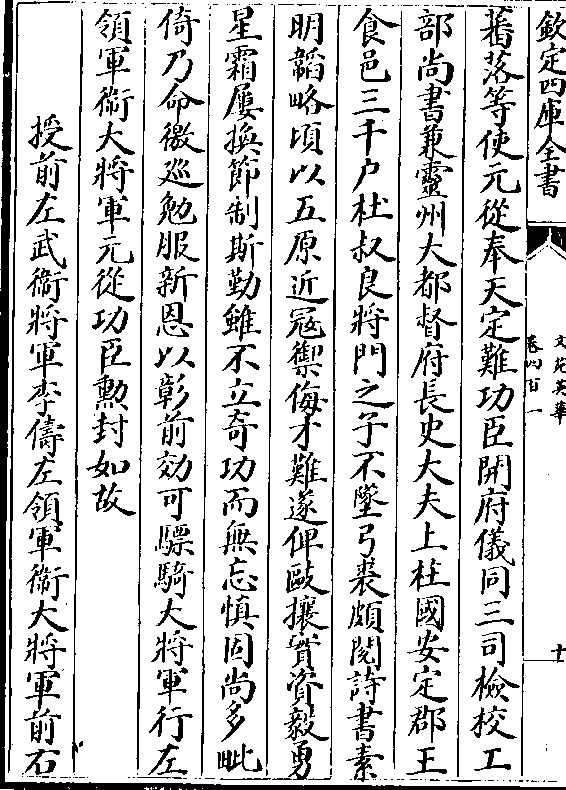 欽定四庫全書
文苑英華
卷四百一
十
蕃落等使元從奉天定難功臣開府儀同三司檢校工
部尚書兼靈州大都督府長史大夫上柱國安定郡王
食邑三千户杜叔良將門之子不墜弓裘頗閲詩書素
明韜略頃以五原近冦禦侮才難遂俾毆攘實資毅勇
星霜屢換節制斯勤雖不立奇功而無忘慎固尚多毗
倚乃命徼巡勉服新恩以彰前効可驃騎大將軍行左
領軍衛大將軍元從功臣勲封如故
授前左武衛將軍李儔左領軍衛大將軍前右